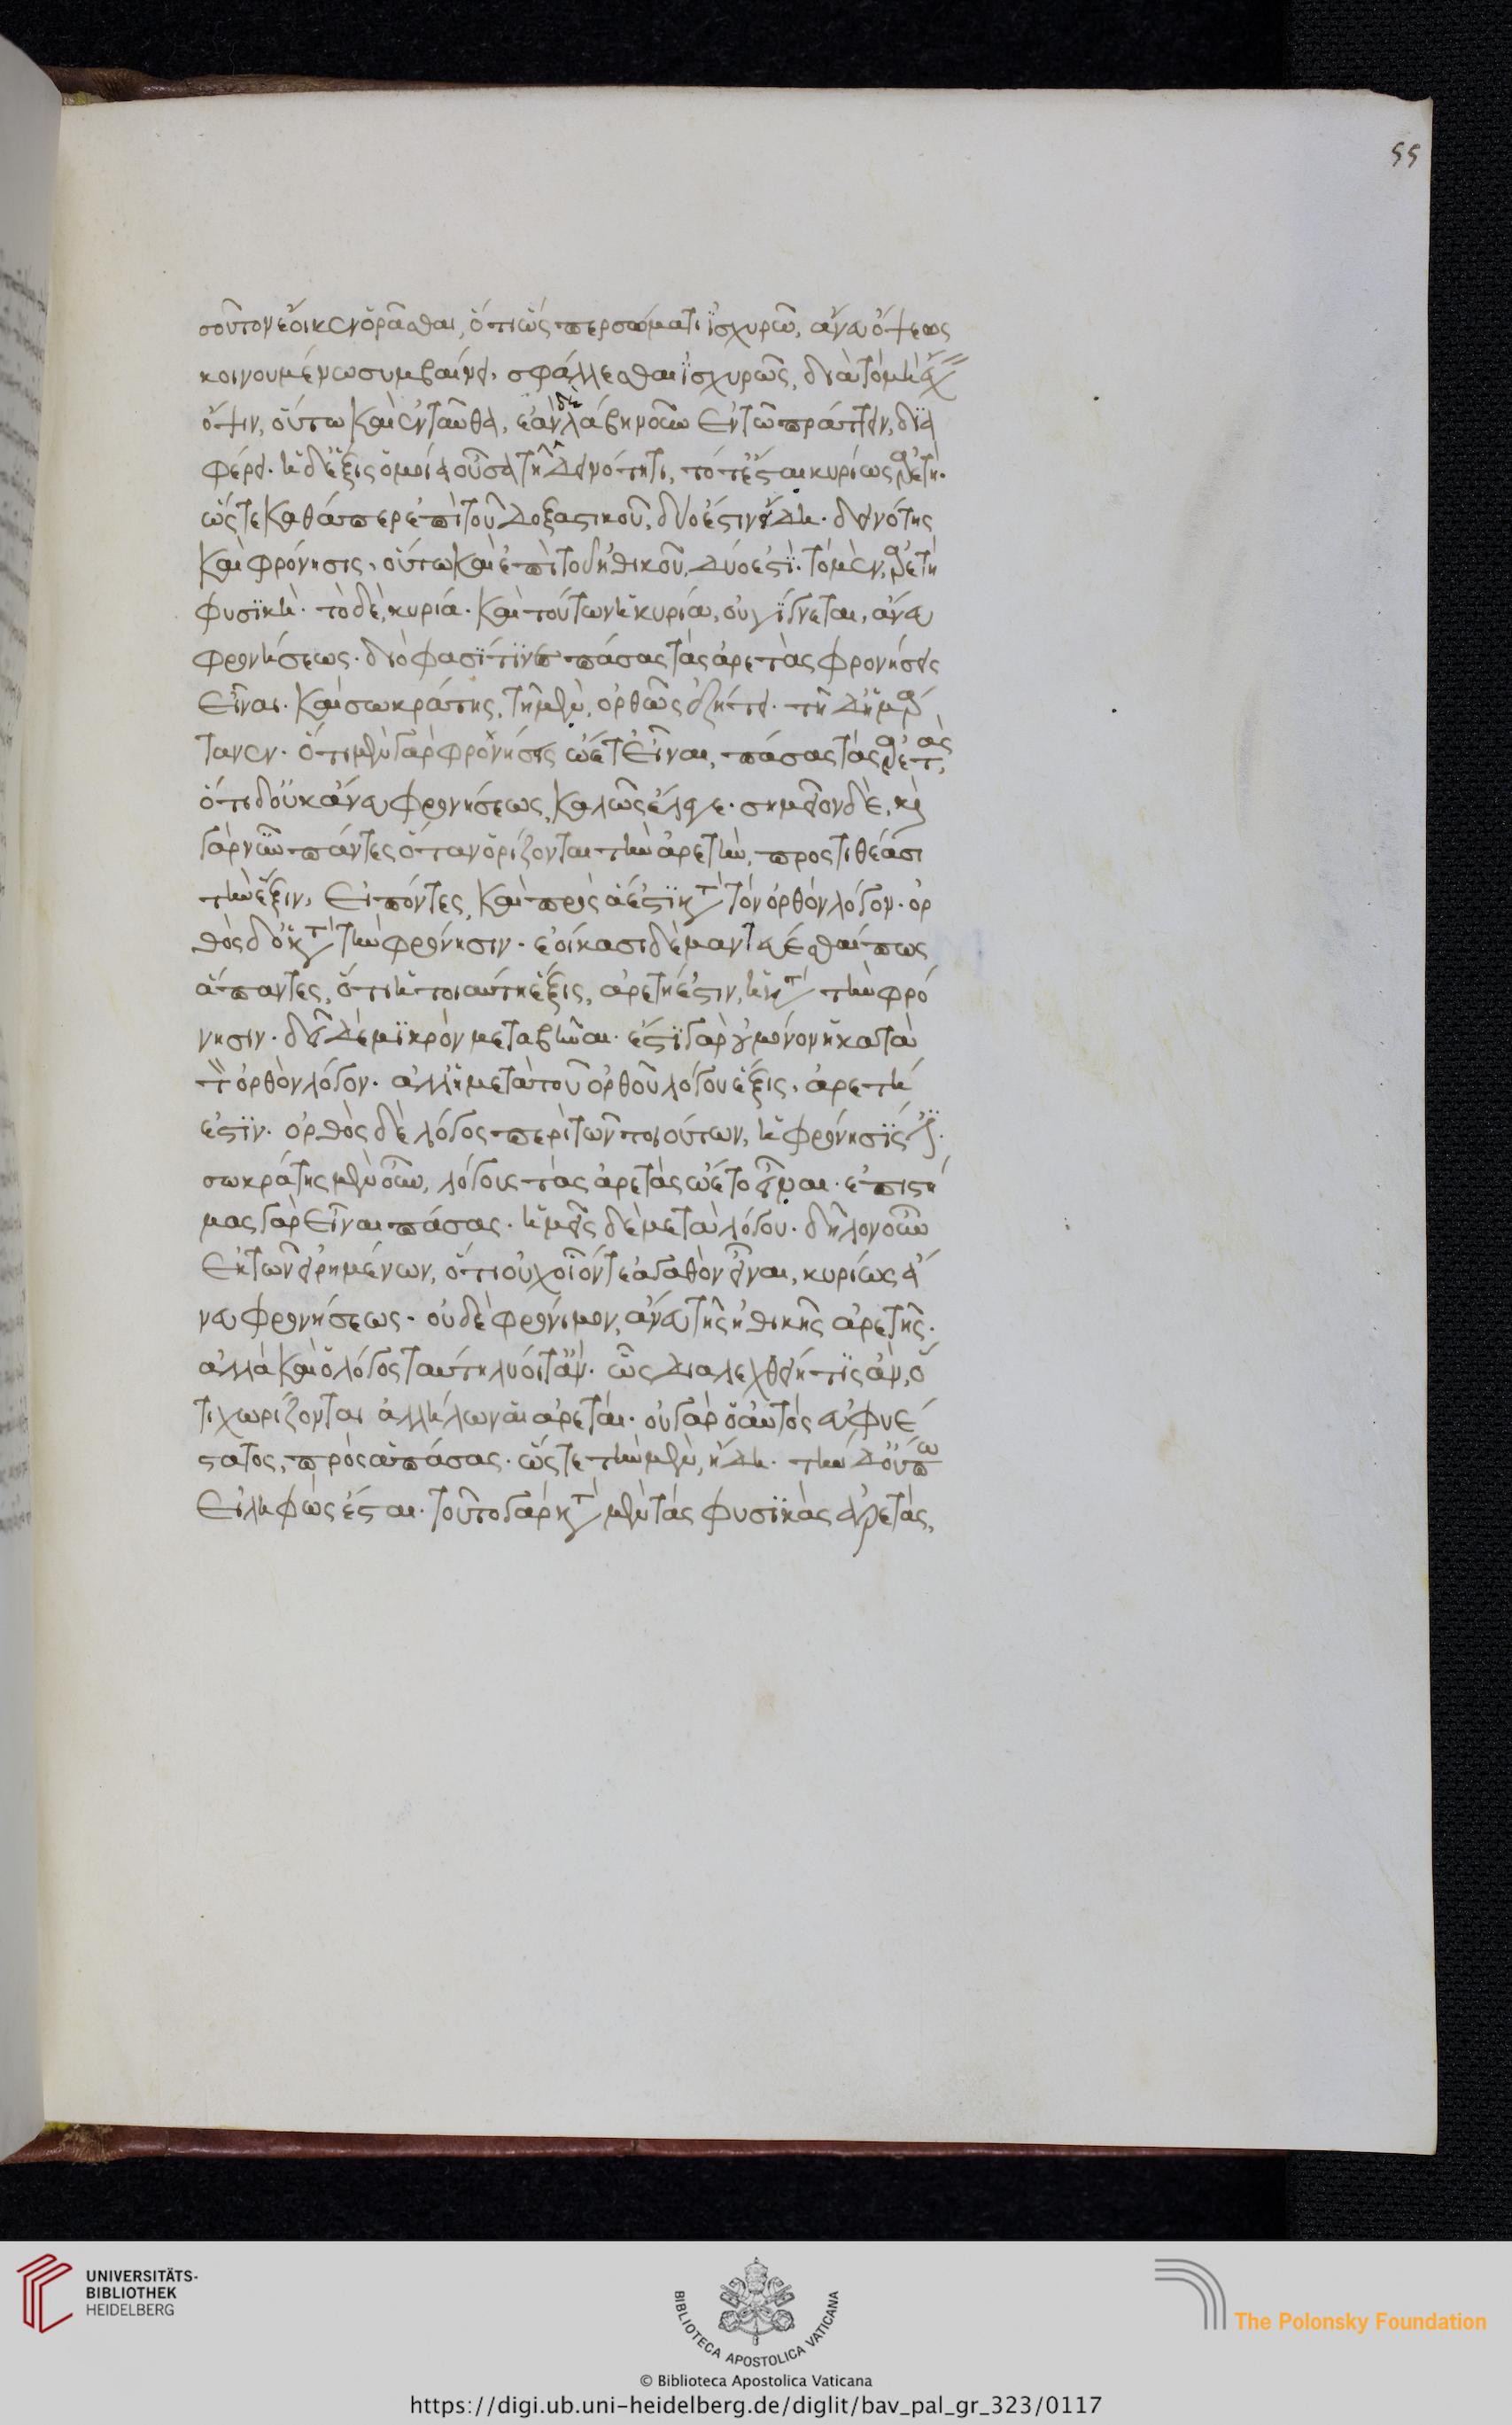 55
σοῦτον ἔοικεν ὁρᾶσθαι, ὅτι ὥσπερ σώματι ἰσχυρῶ, ἄνευ ὄψεως
κινουμένω συμβαίνει, σφάλλεσθαι ἰσχυρῶς, διὰ τὸ μὴ ἔχειν
ὄψιν, οὕτω καὶ ἐνταῦθα, ἐὰν δὲ λάβη νοῦν ἐν τῶ πράττειν, δια
φέρει. ἡ δ' ἕξις ὁμοία οὖσα τῆ δεινότητι, τότ' ἔσται κυρίως ἀρετή.
ὥστε καθάπερ ἐπὶ τοῦ δοξαστικοῦ, δύο ἐστὶν εἴδη. δεινότης
καὶ φρόνησις, οὕτω καὶ ἐπὶ τοῦ ἠθικοῦ, δύο ἐστί. τὸ μὲν, ἀρετὴ
φυσικὴ. τὸ δὲ, κυρία. καὶ τούτων ἡ κυρία, οὐ γίγνεται, ἄνευ
φρονήσεως. διό φασί τινες πάσας τὰς ἀρετὰς φρονήσεις
εἶναι. καὶ σωκράτης, τῆ μὲν, ὀρθῶς ἐζήτει. τῆ δ' ἡμάρ
τανεν. ὅτι μὲν γὰρ φρονήσεις ὤετ' εἶναι, πάσας τὰς ἀρετὰς,
ὅτι δ' οὐκ ἄνευ φρονήσεως, καλῶς ἔλεγε. σημεῖον δὲ, καὶ
γὰρ νῦν πάντες ὅταν ὁρίζονται τὴν ἀρετὴν, προστιθέασι
τὴν ἕξιν, εἰπόντες, καὶ πρὸς ἅ ἐστι κατὰ τὸν ὀρθὸν λόγον. ὀρ
θὸς δ' ὁ κατὰ τὴν φρόνησιν. ἐοίκασι δὲ μαντεύεσθαί πως
ἅπαντες, ὅτι ἡ τοιαύτη ἕξις, ἀρετή ἐστιν, ἡ κατὰ τὴν φρό
νησιν. δεῖ δὲ μικρὸν μεταβῆναι. ἔστι γὰρ οὐ μόνον ἡ κατὰ
τὸν ὀρθὸν λόγον. ἀλλ' ἡ μετὰ τοῦ ὀρθοῦ λόγου ἕξις, ἀρετή
ἐστιν. ὀρθὸς δὲ λόγος περὶ τῶν τοιούτων, ἡ φρόνησίς ἐστι.
σωκράτης μὲν οὖν, λόγους τὰς ἀρετὰς ὤετο εἶναι. ἐπιστή
μας γὰρ εἶναι πάσας. ἡμεῖς δὲ μετὰ λόγου. δῆλον οὖν
ἐκ τῶν εἰρημένων, ὅτι οὐχ οἷόν τε ἀγαθὸν εἶναι, κυρίως ἄ
νευ φρονήσεως. οὐδὲ φρόνιμον, ἄνευ τῆς ἠθικῆς ἀρετῆς.
ἀλλὰ καὶ ὁ λόγος ταύτη λύοιτ' ἂν. ὧς διαλεχθείη τις ἂν, ὅ
τι χωρίζονται ἀλλήλων αἱ ἀρεταί. οὐ γὰρ ὁ αὐτὸς εὐφυέ
στατος, πρὸς ἁπάσας. ὥστε τὴν μὲν, ἤδη. τὴν δ' οὔπω
εἰληφὼς ἔσται. τοῦτο γὰρ κατὰ μὲν τὰς φυσικὰς ἀρετὰς,
UNIVERSITÄTS-
BIBLIOTHEK
HEIDELBERG
BIBLIOTECA APOSTOLICA VATICANA
The Polonsky Foundation
© Biblioteca Apostolica Vaticana
https://digi.ub.uni-heidelberg.de/diglit/bav_pal_gr_323/0117